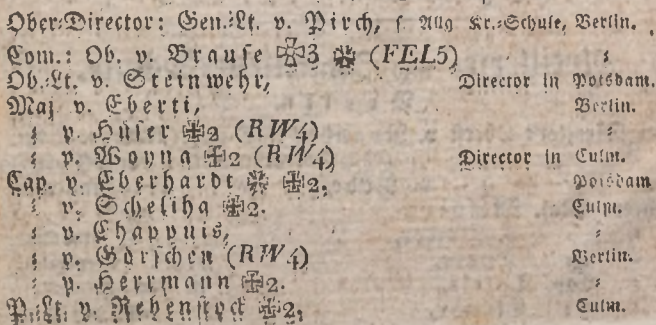 Ober-Director: Gen.-Lt. v. Pirch, s. Allg. Kr.-Schule, Berlin.
Com.: Ob. v. Brause ✠3 (FEL5) =
Ob.-Lt. v. Steinwehr, Director in Potsdam.
Maj v. Eberti, Berlin.
= v. Hüser ✠2 (RW4) =
= v. Woyna ✠2 (RW4) Director in Culm.
Cap. v. Eberhardt ✠2, Potsdam
= v. Scheliha ✠2. Culm.
= v. Chappuis, =
= v. Görschen (RW4) Berlin.
= v. Herrmann ✠2. =
P.-Lt. v. Rebenstock ✠2, Culm.